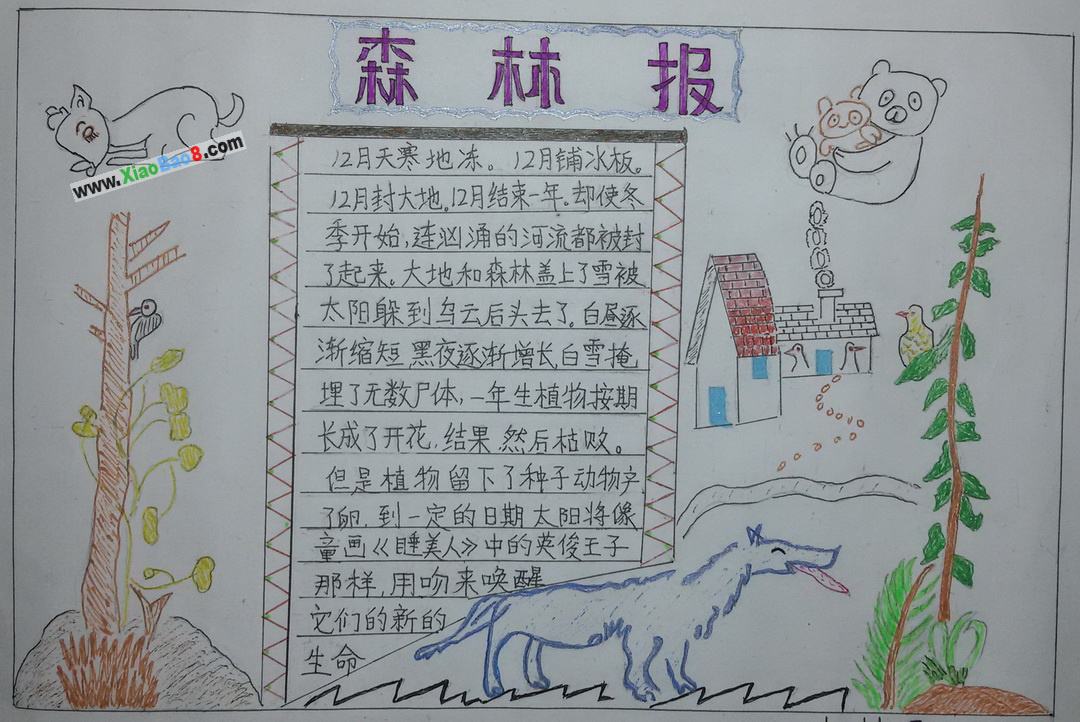 森林报
www.XiaoBao8.com
12月天寒地冻。12月铺冰板。
12月封大地。12月结束一年。却使冬
季开始,连汹涌的河流都被封
了起来。大地和森林盖上了雪被
太阳躲到乌云后头去了。白昼逐
渐缩短,黑夜逐渐增长,白雪掩
埋了无数尸体,一年生植物按期
长成了开花,结果,然后枯败。
但是植物留下了种子动物产
了卵,到一定的日期太阳将像
童画《睡美人》中的英俊王子
那样,用吻来唤醒
它们的新的
生命